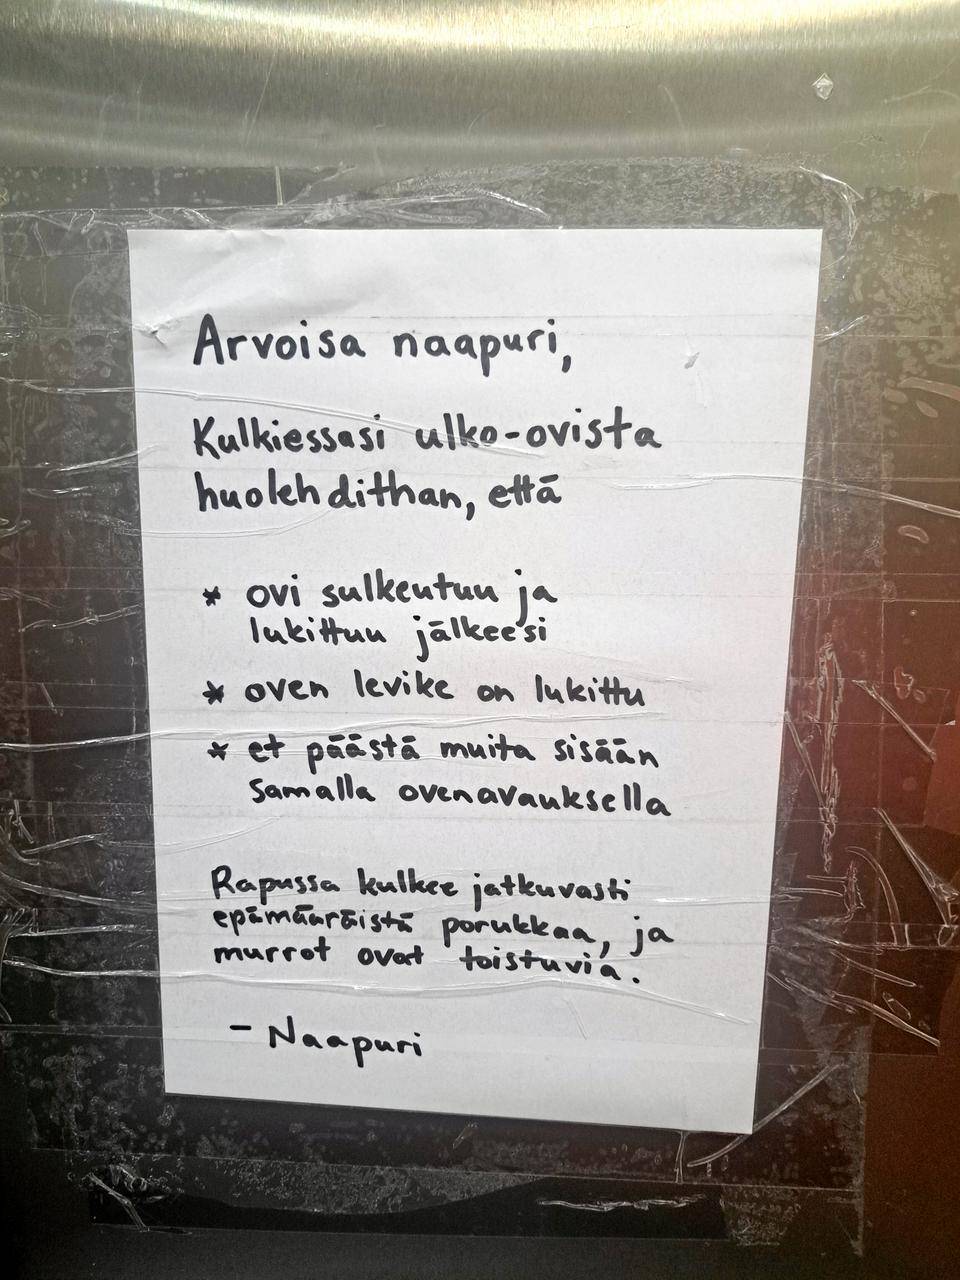 Arvoisa naapuri,
Kulkiessasi ulko-ovista
huolehdithan, että
* ovi sulkeutuu ja
lukittuu jälkeesi
* oven levike on lukittu
* et päästä muita sisään
samalla ovenavauksella
Rapussa kulkee jatkuvasti
epämääräistä porukkaa, ja
murrot ovat toistuvia.
- Naapuri